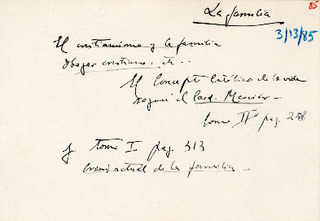 85
La familia
3/13/85
El cristianismo y la familia
Hogar cristiano, etc...
El Concepto Católico de la vida
según el Card. Mercier —
tomo II pag. 278
y tomo I pag. 313
actual de la familia —